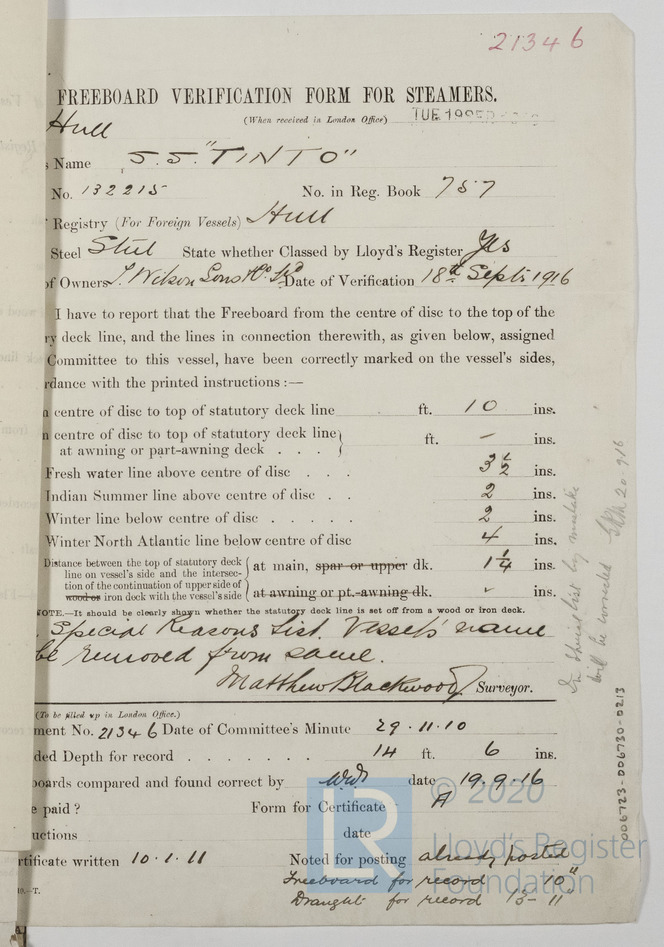 21346
FREEBOARD VERIFICATION FORM FOR STEAMERS.
(When received in London Office) TUE 19 SEP
Hull
Name S.S. "TINTO"
No. 132215 No. in Reg. Book 757
Registry (For Foreign Vessels) Hull
Steel Steel State whether Classed by Lloyd's Register Yes
of Owners T. Wilson Sons & Co. Ld Date of Verification 18th Septr. 1916
I have to report that the Freeboard from the centre of disc to the top of the
ry deck line, and the lines in connection therewith, as given below, assigned
Committee to this vessel, have been correctly marked on the vessel's sides,
rdance with the printed instructions :—
centre of disc to top of statutory deck line ft. 10 ins.
n centre of disc to top of statutory deck line
at awning or part-awning deck . . . ft. - ins.
Fresh water line above centre of disc . . . 3 1/2 ins.
Indian Summer line above centre of disc . . 2 ins.
Winter line below centre of disc . . . . . 2 ins.
Winter North Atlantic line below centre of disc 4 ins.
Distance between the top of statutory deck
line on vessel's side and the intersec-
tion of the continuation of upper side of
wood or iron deck with the vessel's side
at main, spar or upper dk. 1 1/4 ins.
at awning or pt.-awning dk. - ins.
NOTE.—It should be clearly shown whether the statutory deck line is set off from a wood or iron deck.
Special Reasons List. Vessel's name
be removed from same.
Matthew Blackwood Surveyor.
In Special List by mistake
will be corrected 20.9.16
(To be filled up in London Office.)
ment No. 21346 Date of Committee's Minute 29.11.10
ded Depth for record . . . . . . . 14 ft. 6 ins.
boards compared and found correct by date 19.9.16
e paid ? Form for Certificate A
uctions date
rtificate written 10.1.11 Noted for posting already posted
Freeboard for record 10"
Draught for record 13-11
10.—T.
006723-006730-0213
LR
© 2020
Lloyd's Register
Foundation